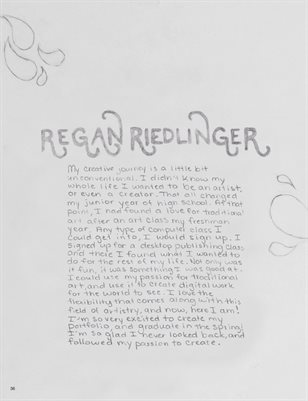 REGAN RIEDLINGER
My creative journey is a little bit
unconventional. I didn't know my
whole life I wanted to be an artist,
or even a creator. That all changed
my junior year of high school. At that
point, I had found a love for traditional
art after an art class my freshman
year. Any type of computer class I
could get into, I would sign up. I
signed up for a desktop publishing class
and there I found what I wanted to
do for the rest of my life. Not only was
it fun, it was something I was good at.
I could use my passion for traditional
art, and use it to create digital work
for the world to see. I love the
flexibility that comes along with this
field of artistry, and now, here I am!
I'm so very excited to create my
portfolio and graduate in the spring!
I'm so glad I never looked back, and
followed my passion to create.
36